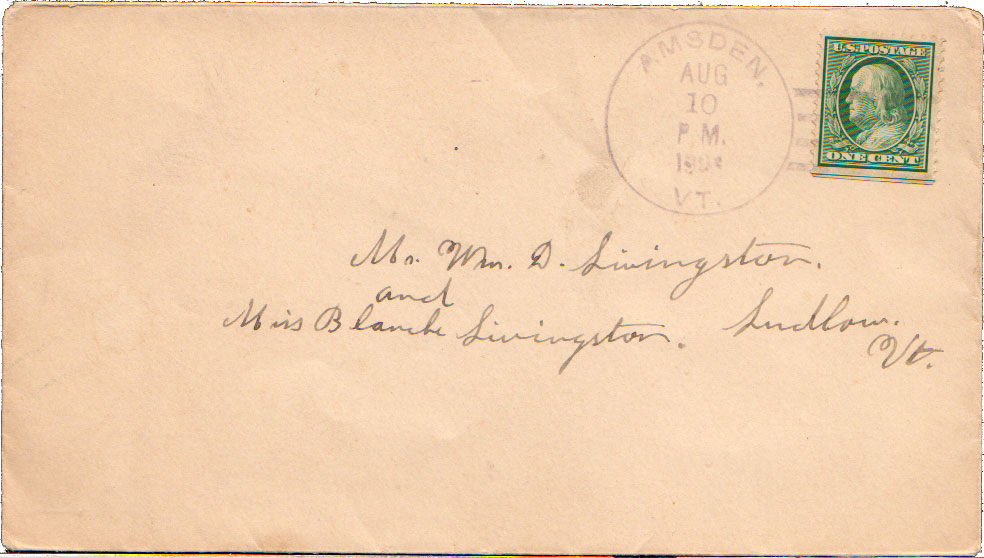 AMSDEN,
AUG
10
P.M.
VT.
U.S. POSTAGE
ONE CENT
Mr. Wm. D. Livingston.
and
Miss Blanche Livingston. Ludlow.
Vt.